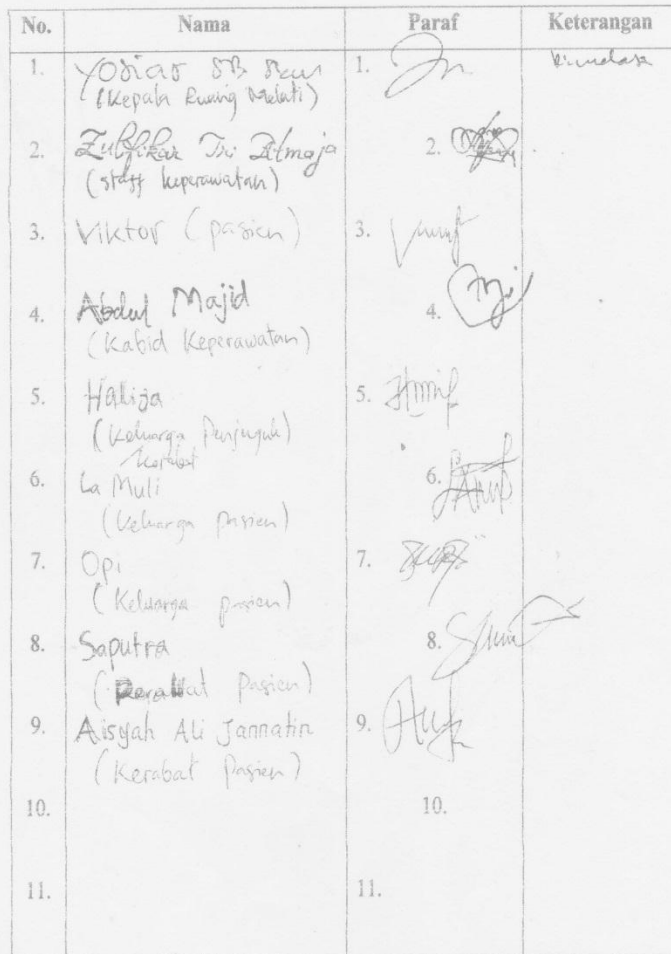 No. Nama Paraf Keterangan
1. Yosiar SB 1.
(Kepala Ruang Melati)
2. Zulfikar Tri Atmaja 2.
(staff keperawatan)
3. Viktor (pasien) 3.
4. Abdul Majid 4.
(Kabid Keperawatan)
5. Halija 5.
(Keluarga Penjenguk)
kerabat
6. La Muli 6.
(Keluarga pasien)
7. Opi 7.
(Keluarga pasien)
8. Saputra 8.
(Kerabat Pasien)
9. Aisyah Ali Jannatin 9.
(Kerabat Pasien)
10. 10.
11. 11.